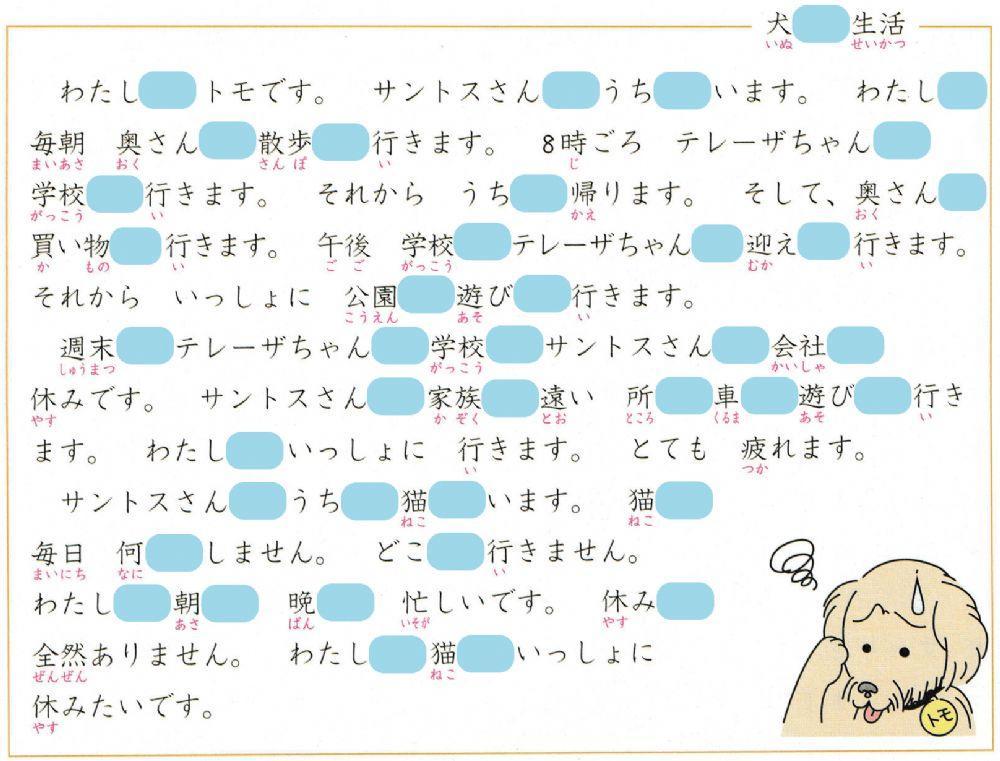 犬 生活
いぬ せいかつ
わたし トモです。 サントスさん うち います。 わたし
毎朝 奥さん 散歩 行きます。 8時ごろ テレーザちゃん
まいあさ おく さんぽ い じ
学校 行きます。 それから うち 帰ります。 そして、奥さん
がっこう い かえ おく
買い物 行きます。 午後 学校 テレーザちゃん 迎え 行きます。
か もの い ごご がっこう むか い
それから いっしょに 公園 遊び 行きます。
こうえん あそ い
週末 テレーザちゃん 学校 サントスさん 会社
しゅうまつ がっこう かいしゃ
休みです。 サントスさん 家族 遠い 所 車 遊び 行き
やす かぞく とお ところ くるま あそ い
ます。 わたし いっしょに 行きます。 とても 疲れます。
い つか
サントスさん うち 猫 います。 猫
ねこ ねこ
毎日 何 しません。 どこ 行きません。
まいにち なに い
わたし 朝 晩 忙しいです。 休み
あさ ばん いそが やす
全然ありません。 わたし 猫 いっしょに
ぜんぜん ねこ
休みたいです。
やす
トモ